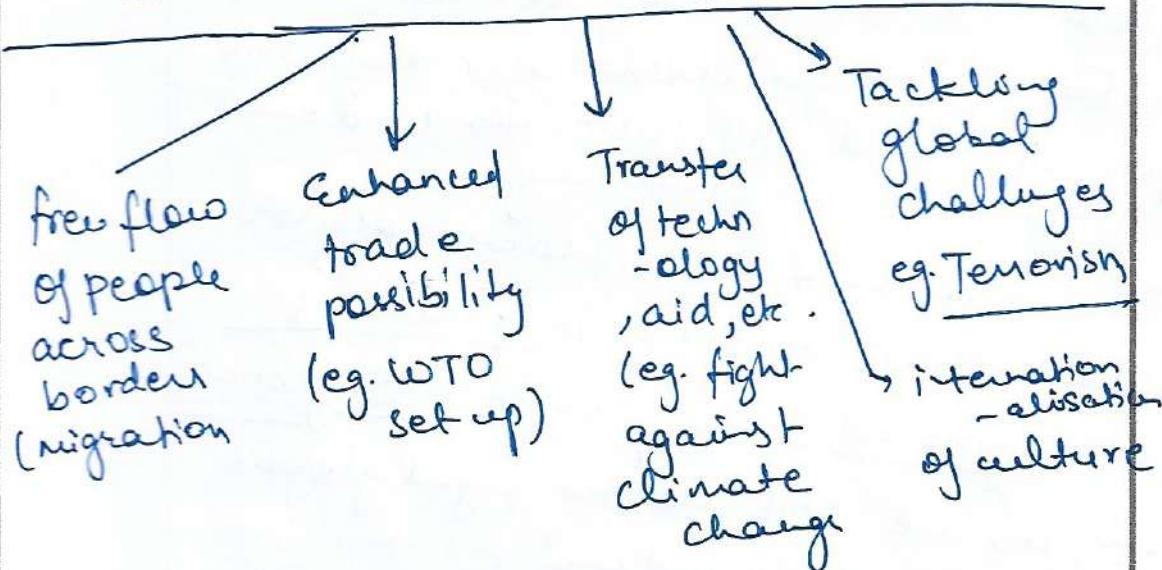 free flow
of people
across
borders
(migration
Enhanced
trade
possibility
(eg. WTO
set up)
Transfer
of techn
-ology
, aid, etc.
(eg. fight
against
climate
change
Tackling
global
challenges
eg. Terrorism
internation
-alisation
of culture